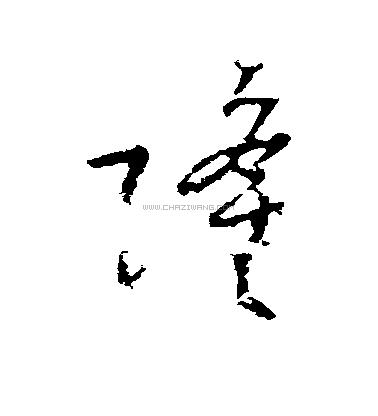 隆
WWW.CHAZIWANG.COM